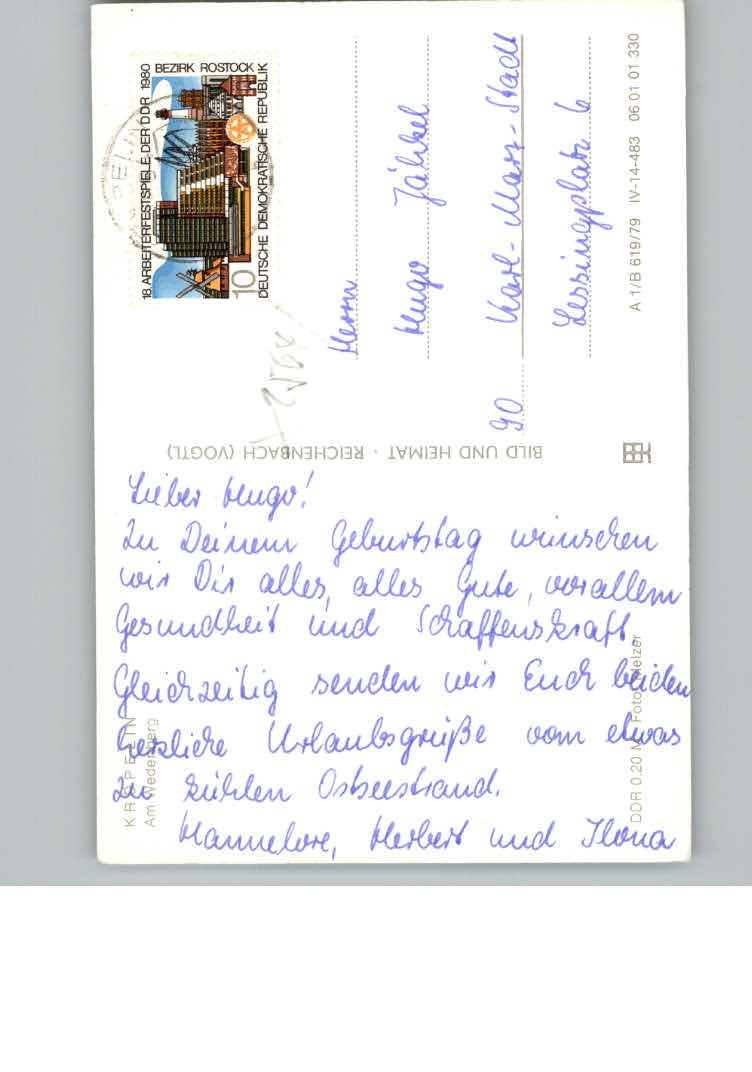 Lieber Hugo!
Zu Deinem Geburtstag wünschen
wir Dir alles, alles Gute, vor allem
Gesundheit und Schaffenskraft.
Gleichzeitig senden wir Euch beiden
herzliche Urlaubsgrüße vom etwas
zu kühlen Ostseestrand.
Hannelore, Herbert und Ilona
Herrn
Hugo Jähkel
90 Karl-Marx-Stadt
Lessingplatz 6
18. ARBEITERFESTSPIELE DER DDR 1980
BEZIRK ROSTOCK
DEUTSCHE DEMOKRATISCHE REPUBLIK
10
BILD UND HEIMAT · REICHENBACH (VOGTL)
A 1/B 619/79 IV-14-483 06 01 01 330
KRÖPELIN
Am Wedenberg
DDR 0,20 M Foto: Melzer